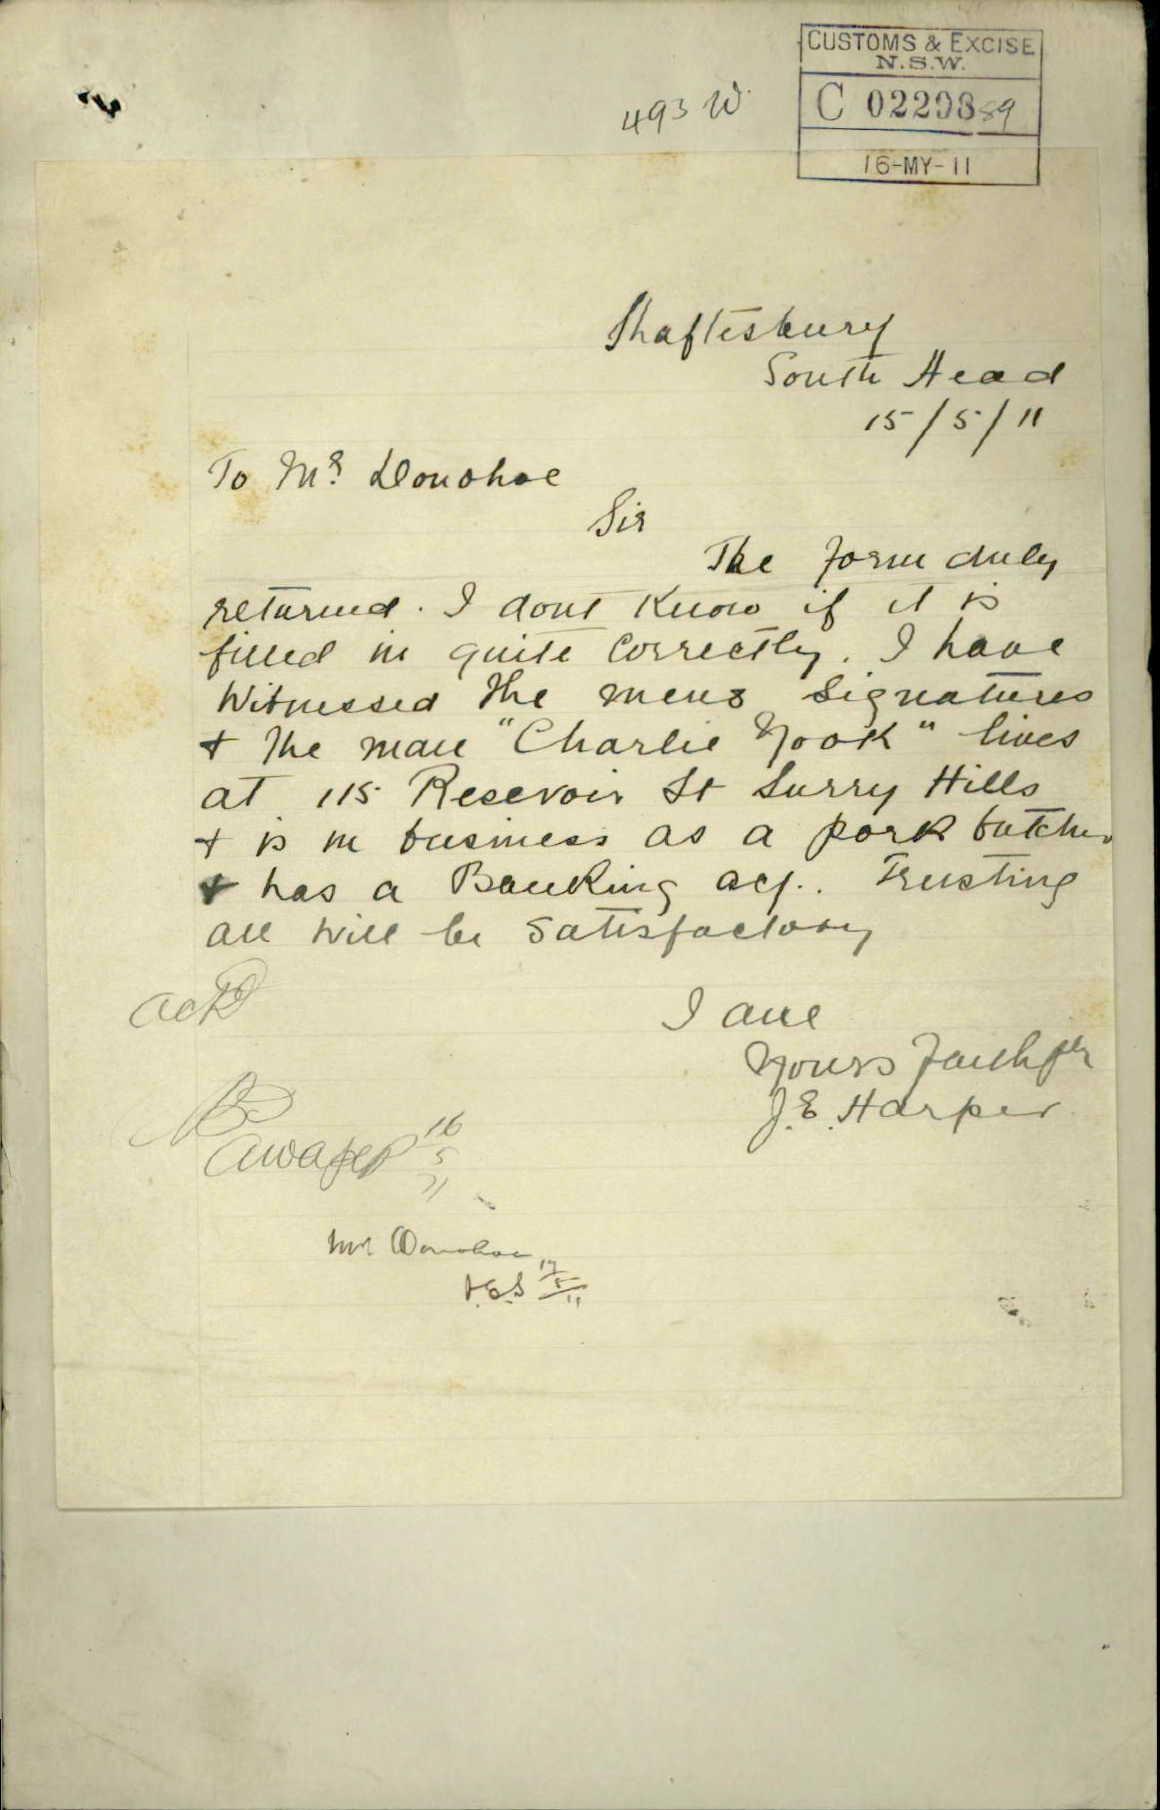 CUSTOMS & EXCISE
N.S.W.
C 02298 89
16-MY-11
493 W.
Shaftesbury
South Head
15/5/11
To Mr. Donohoe
Sir
The form duly
returned. I dont know if it is
filled in quite correctly. I have
witnessed the mens signatures
+ the man "Charlie Yook" lives
at 115 Resevoir St Surry Hills
+ is in business as a pork butcher
+ has a Banking acy.. Trusting
all will be satisfactory
I am
Yours Faithfly
J.E. Harper
ackd
16
5
11
Mr Donohoe
17
5
11